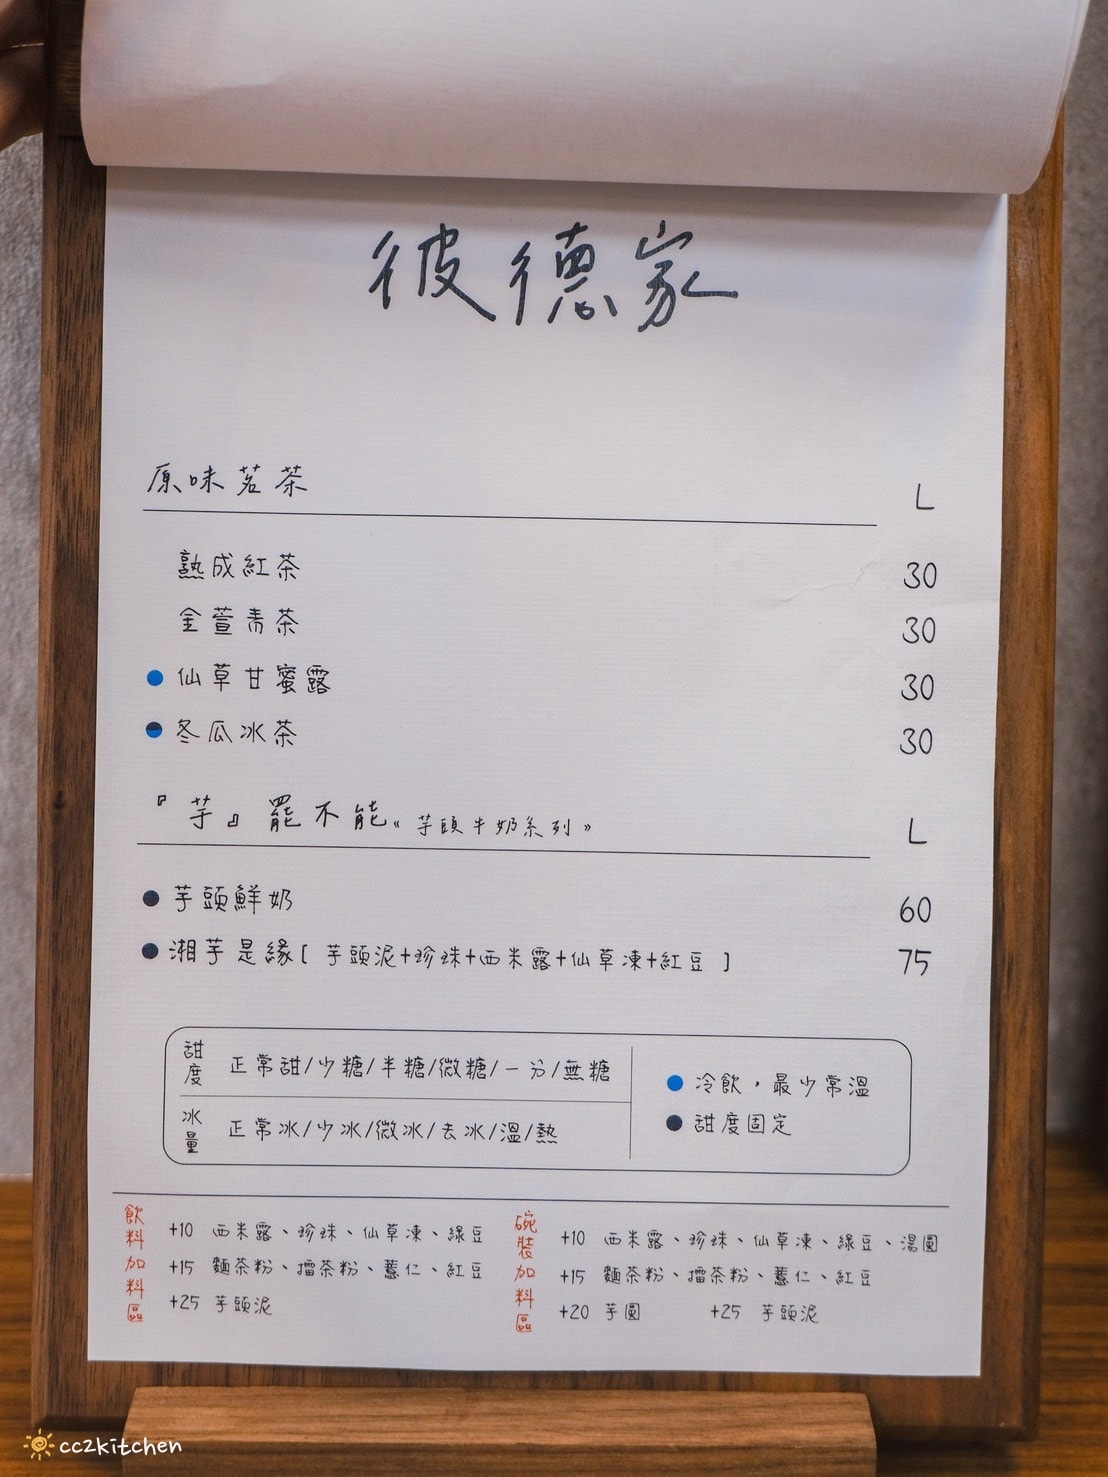 彼德家
原味茗茶 L
熟成紅茶 30
金萱青茶 30
仙草甘蜜露 30
冬瓜冰茶 30
『芋』罷不能《芋頭牛奶系列》 L
芋頭鮮奶 60
湘芋是緣[芋頭泥+珍珠+西米露+仙草凍+紅豆] 75
甜度 正常甜/少糖/半糖/微糖/一分/無糖
冰量 正常冰/少冰/微冰/去冰/溫/熱
冷飲，最少常溫
甜度固定
飲料加料區
+10 西米露、珍珠、仙草凍、綠豆
+15 麵茶粉、擂茶粉、薏仁、紅豆
+25 芋頭泥
碗裝加料區
+10 西米露、珍珠、仙草凍、綠豆、湯圓
+15 麵茶粉、擂茶粉、薏仁、紅豆
+20 芋圓 +25 芋頭泥
cc2kitchen